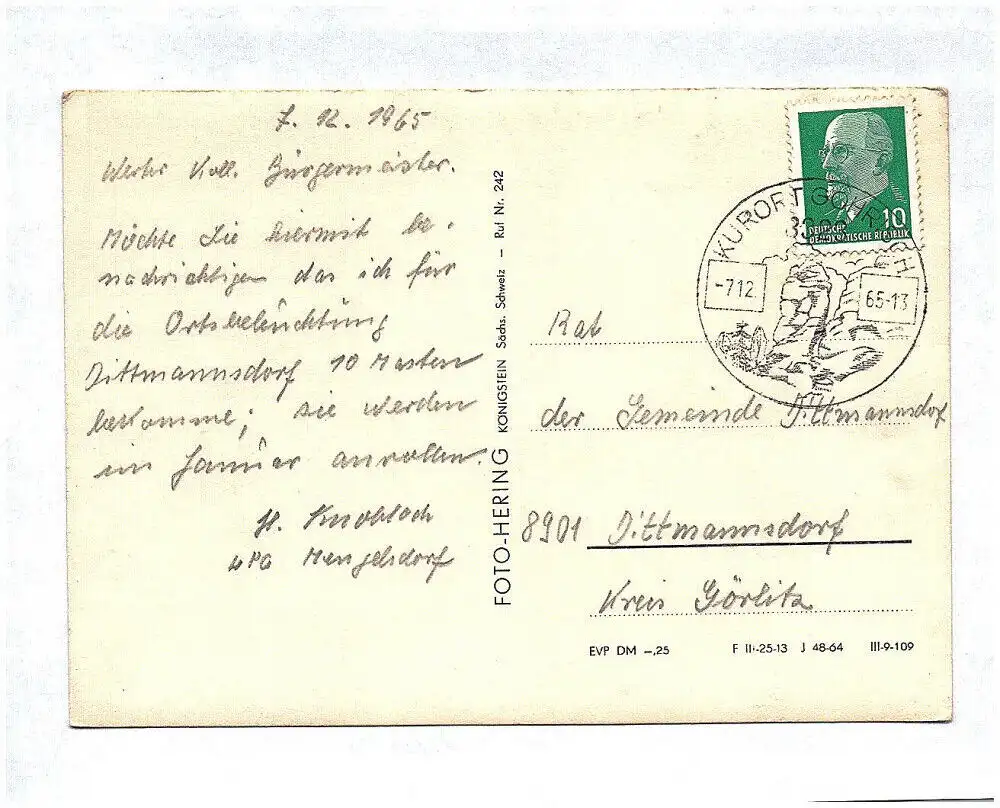 7. 12. 1965
Werter Koll. Bürgermeister.
Möchte Sie hiermit be-
nachrichtigen das ich für
die Ortsbeleuchtung
Dittmannsdorf 10 Masten
bekomme; sie werden
im Januar anrollen.
H. Knobloch
LPG Mengelsdorf
FOTO-HERING KÖNIGSTEIN Sächs. Schweiz – Ruf Nr. 242
10
DEUTSCHE
DEMOKRATISCHE REPUBLIK
KURORT GOHRISCH
-7.12.
65-13
Rat
der Gemeinde Dittmannsdorf
8901 Dittmannsdorf
Kreis Görlitz
EVP DM –,25 F II-25-13 J 48-64 III-9-109